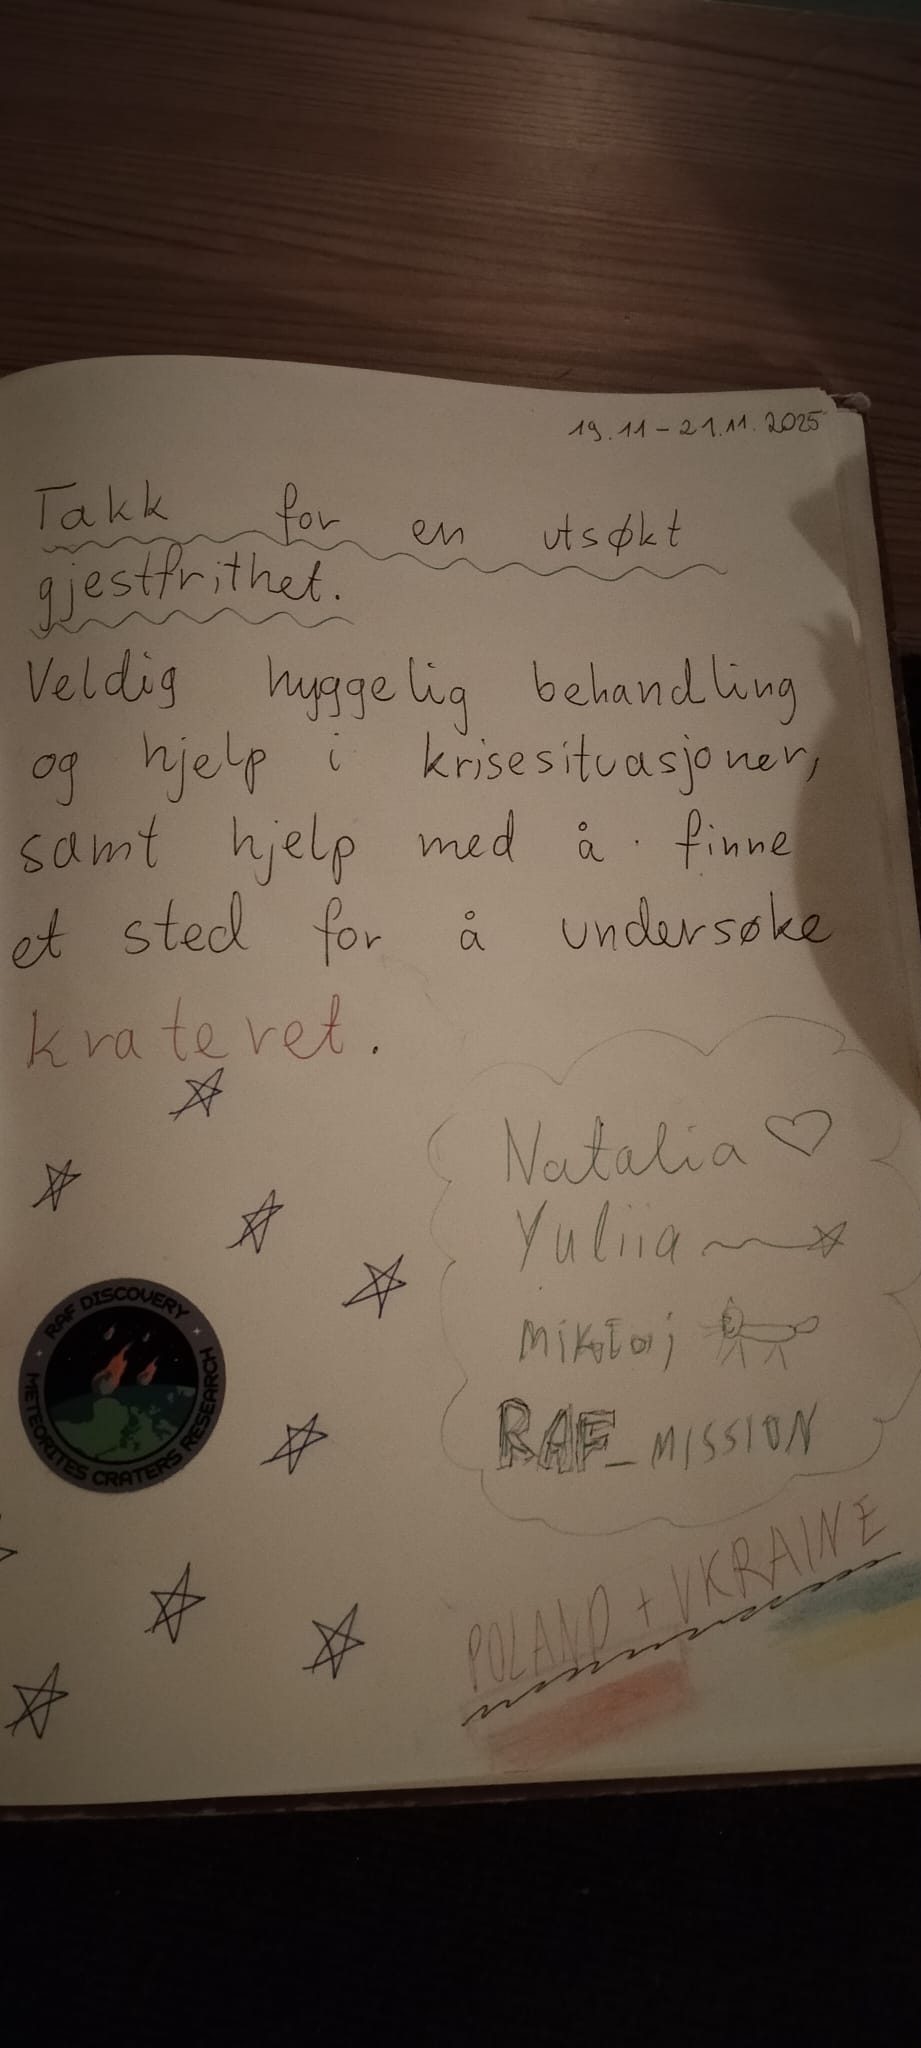 19.11 - 21.11.2025
Takk for en utsøkt
gjestfrithet.
Veldig hyggelig behandling
og hjelp i krisesituasjoner,
samt hjelp med å finne
et sted for å undersøke
krateret.
Natalia
Yuliia
Mikołaj
RAF_MISSION
RAF DISCOVERY
METEORITES CRATERS RESEARCH
POLAND + UKRAINE